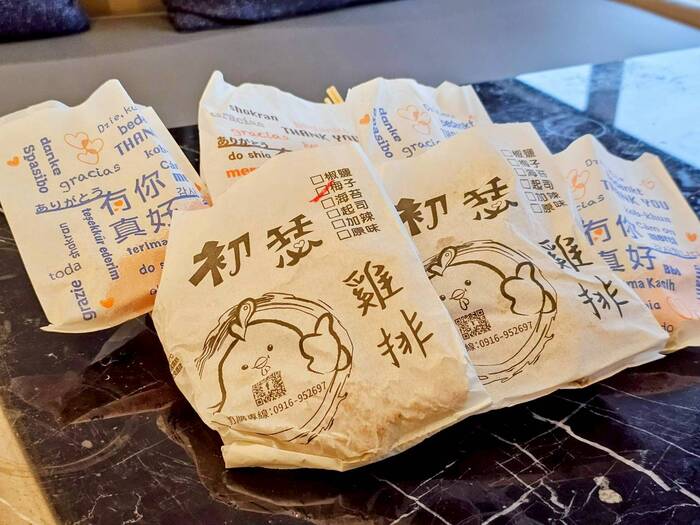 danke
Spasibo
gracias
ありがとう
有你
真好
THANK
teşekkür ederim
shokran
toda
grazie
terima
do
shokran
gracias
gracias
THANK YOU
ありがとう
do
danke
Spasibo
gracias
□椒鹽
□梅子
□海苔
□起司
□加辣
□原味
初瑟
雞排
專線:0916-952697
□椒鹽
□梅子
□海苔
□起司
□加辣
□原味
初瑟
雞排
專線:0916-952697
THANK YOU
有你
真好
Cảm ơn
ma Kasih